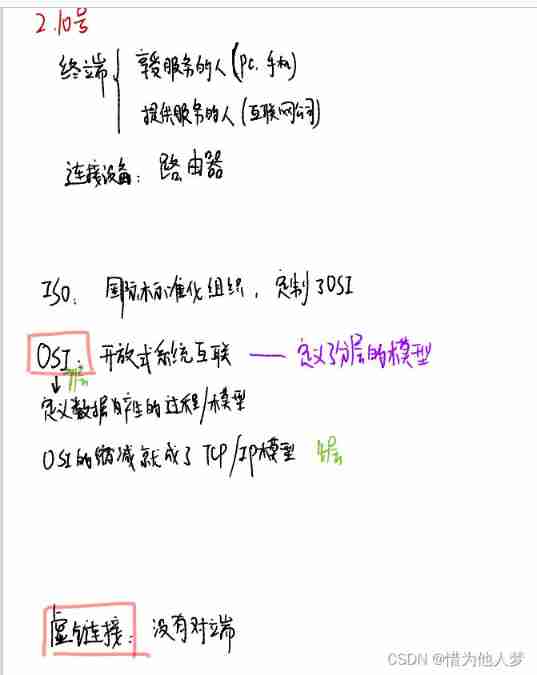 2.10号
终端 享受服务的人(pc.手机)
提供服务的人(互联网公司)
连接设备: 路由器
ISO: 国际标准化组织, 定制了OSI
OSI: 开放式系统互联 —— 定义了分层的模型
7层
定义数据产生的过程/模型
OSI的缩减就成了TCP/IP模型 4层
虚链接: 没有对端
CSDN @惜为他人梦